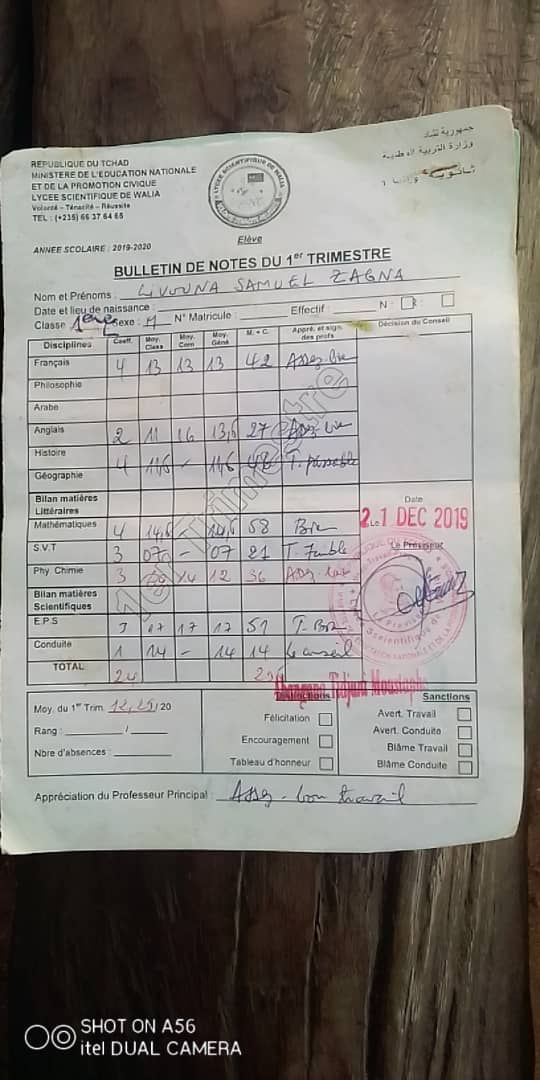 REPUBLIQUE DU TCHAD
MINISTERE DE L'EDUCATION NATIONALE
ET DE LA PROMOTION CIVIQUE
LYCEE SCIENTIFIQUE DE WALIA
Volonté – Ténacité – Réussite
TEL : (+235) 66 37 64 65
جمهورية تشاد
وزارة التربية الوطنية
LYCEE SCIENTIFIQUE DE WALIA
Elève
ANNEE SCOLAIRE : 2019-2020
BULLETIN DE NOTES DU 1er TRIMESTRE
Nom et Prénoms : SAMUEL ZAGNA
Date et lieu de naissance :
Classe 1ère Sexe : M N° Matricule : Effectif : N : R :
Disciplines Coeff. Moy. Class Moy. Com Moy. Géné M. + C. Appré. et sign. des profs Décision du Conseil
Français 4 13 13 13 42 Assez-bien
Philosophie
Arabe
Anglais 2 11 16 13,5 27 Assez bien
Histoire 4 11,5 - 11,5 46 T. passable
Géographie
Bilan matières Littéraires
Mathématiques 4 14,5 14,5 58 Bien
S.V.T 3 07 - 07 21 T. Faible
Phy. Chimie 3 09 14 12 36 Assez bien
Bilan matières Scientifiques
E.P.S 3 17 17 17 51 T. Bien
Conduite 1 14 - 14 14 Le conseil
TOTAL 24
1er Trimestre
Date
Le 21 DEC 2019
Le Proviseur
Moy. du 1er Trim 12,29 / 20
Rang : /
Nbre d'absences :
Distinctions
Félicitation
Encouragement
Tableau d'honneur
Sanctions
Avert. Travail
Avert. Conduite
Blâme Travail
Blâme Conduite
Appréciation du Professeur Principal : Assez-bon travail
SHOT ON A56
itel DUAL CAMERA